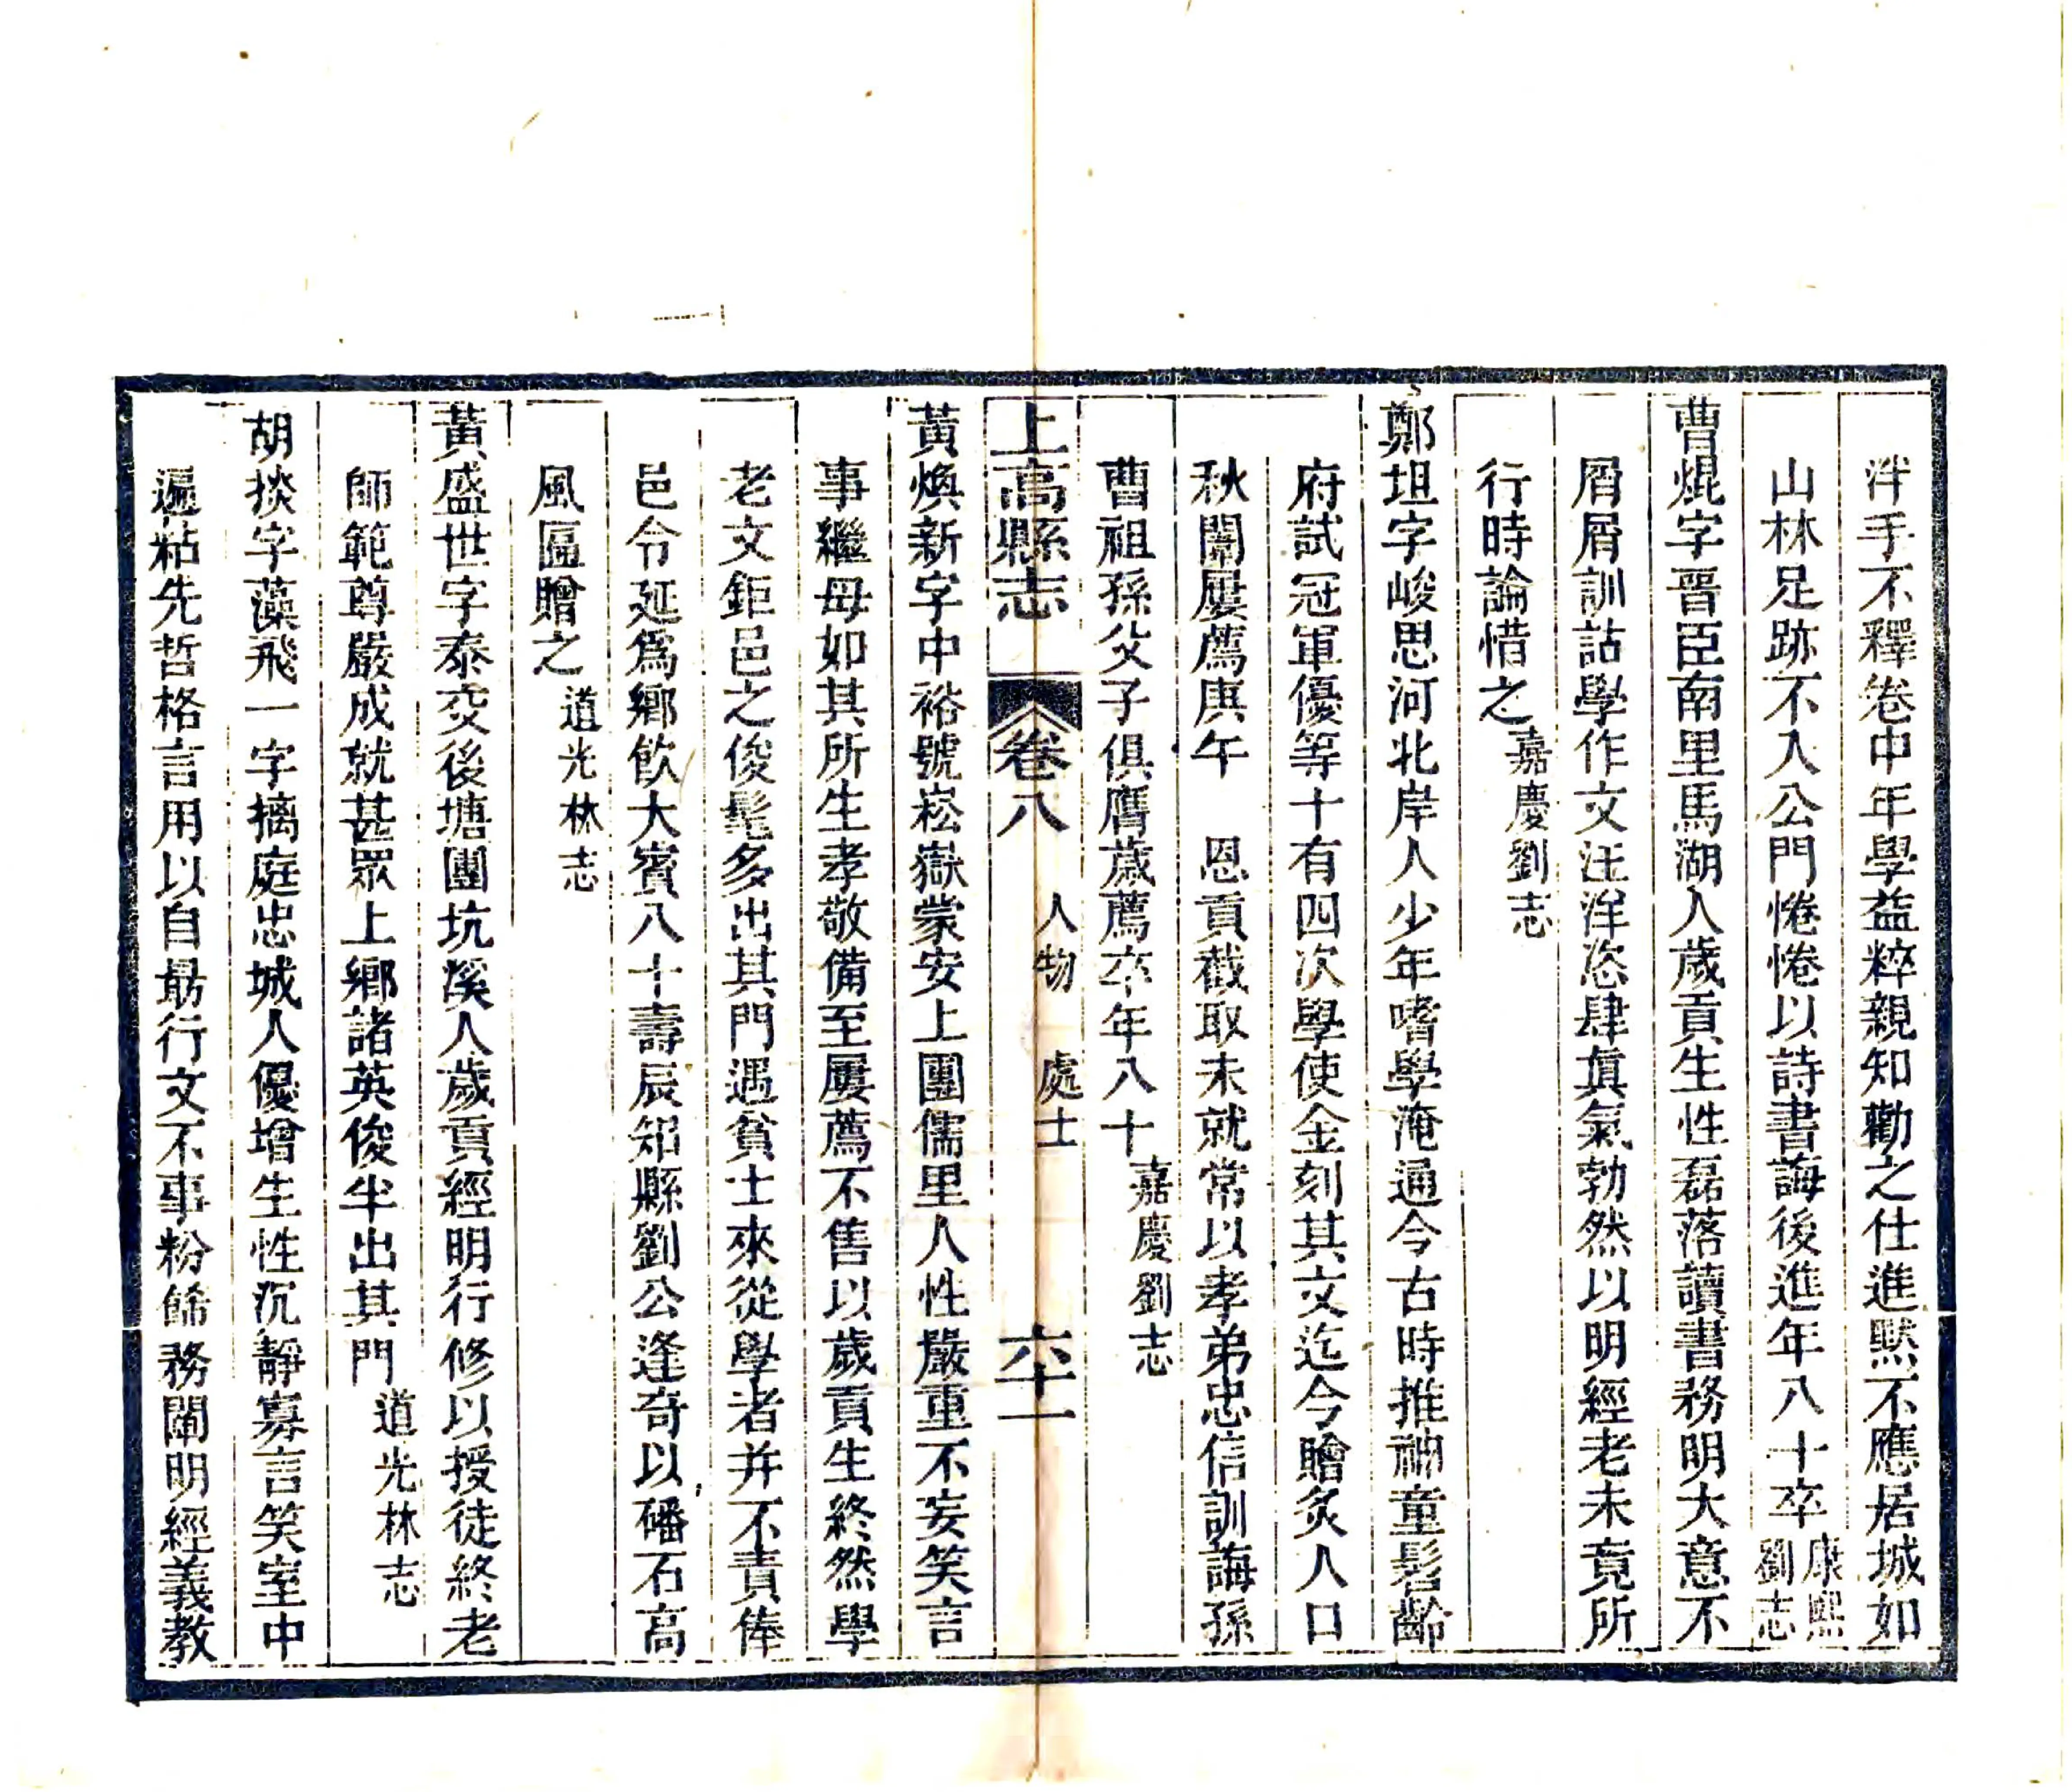 泮手不釋卷中年學益粹親知勸之仕進默不應居城如
山林足跡不入公門惓惓以詩書誨後進年八十卒康熙劉志
曹焜字晋臣南里馬湖人歲貢生性磊落讀書務明大意不
屑屑訓詁學作文汪洋恣肆眞氣勃然以明經老未竟所
行時論惜之嘉慶劉志
鄭坦字峻思河北岸人少年嗜學淹通今古時推神童髫齡
府試冠軍優等十有四次學使金刻其文迄今膾炙人口
秋闈屢薦庚午 恩貢截取未就常以孝弟忠信訓誨孫
曹祖孫父子俱膺歲薦卒年八十嘉慶劉志
上高縣志 卷八 人物 處士 六十一
黃煥新字中裕號崧嶽蒙安上團儒里人性嚴重不妄笑言
事繼母如其所生孝敬備至屢薦不售以歲貢生終然學
老文鉅邑之俊髦多出其門遇貧士來從學者并不責俸
邑令延爲鄉飲大賓八十壽辰知縣劉公逢奇以磻石高
風匾贈之道光林志
黃盛世字泰交後塘團坑溪人歲貢經明行修以授徒終老
師範尊嚴成就甚眾上鄉諸英俊半出其門道光林志
胡掞字藻飛一字摛庭忠城人優增生性沉靜寡言笑室中
遍粘先哲格言用以自勗行文不事粉餙務闡明經義教